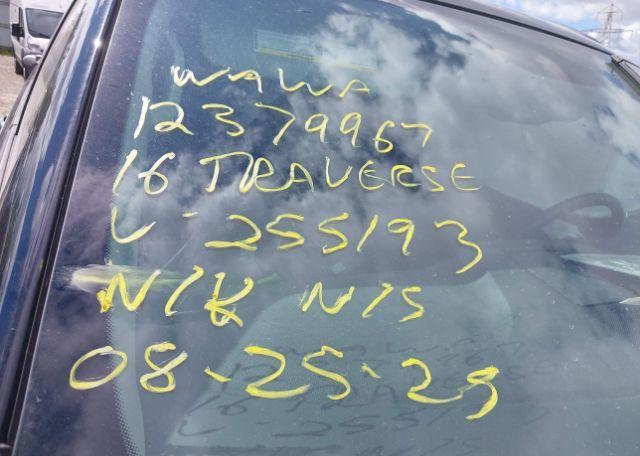 WAWA
12379967
16 TRAVERSE
V-255193
N/K N/S
08-25-23